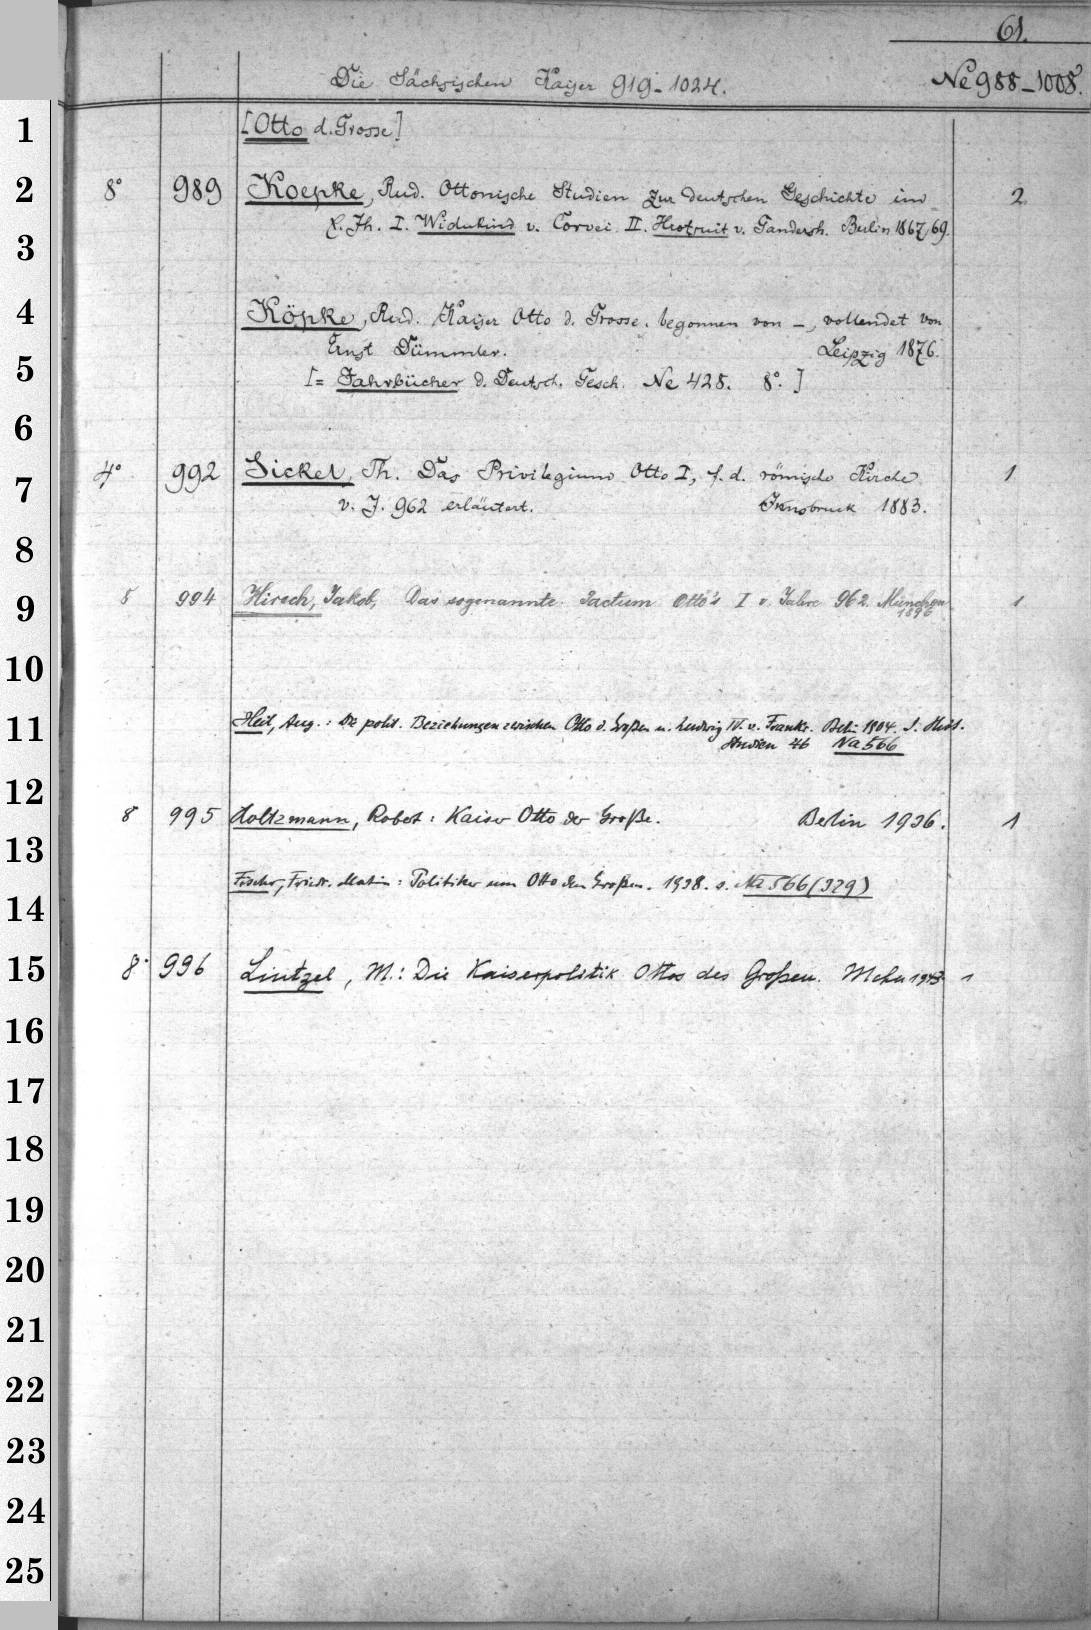 61.
Die Sächsischen Kaiser 919-1024. Ne 988-1008.
1 [Otto d. Grosse]
2 8° 989 Koepke, Rud. Ottonische Studien zur deutschen Geschichte im 2
3 X. Jh. I. Widukind v. Corvei II. Hrotsuit v. Gandersh. Berlin 1867/69.
4 Köpke, Rud. Kaiser Otto d. Grosse, begonnen von —, vollendet von
Ernst Dümmler. Leipzig 1876.
5 [= Jahrbücher d. Deutsch. Gesch. Ne 428. 8°.]
6
7 4° 992 Sickel, Th. Das Privilegium Otto I, f. d. römische Kirche 1
v. J. 962 erläutert. Innsbruck 1883.
8
9 8 994 Hirsch, Jakob, Das sogenannte Pactum Otto's I v. Jahre 962. München 1
1896
10
11 Heil, Aug.: Die polit. Beziehungen zwischen Otto d. Großen u. Ludwig IV. v. Frankr. Berlin 1904. S. Hist.
Studien 46 Na 566
12
8 995 Holtzmann, Robert: Kaiser Otto der Große. Berlin 1936. 1
13
Fischer, Friedr. Martin: Politiker um Otto den Großen. 1938. s. Na 566 (329)
14
15 8° 996 Lintzel, M.: Die Kaiserpolitik Ottos des Großen. Mchn 1943 1
16
17
18
19
20
21
22
23
24
25